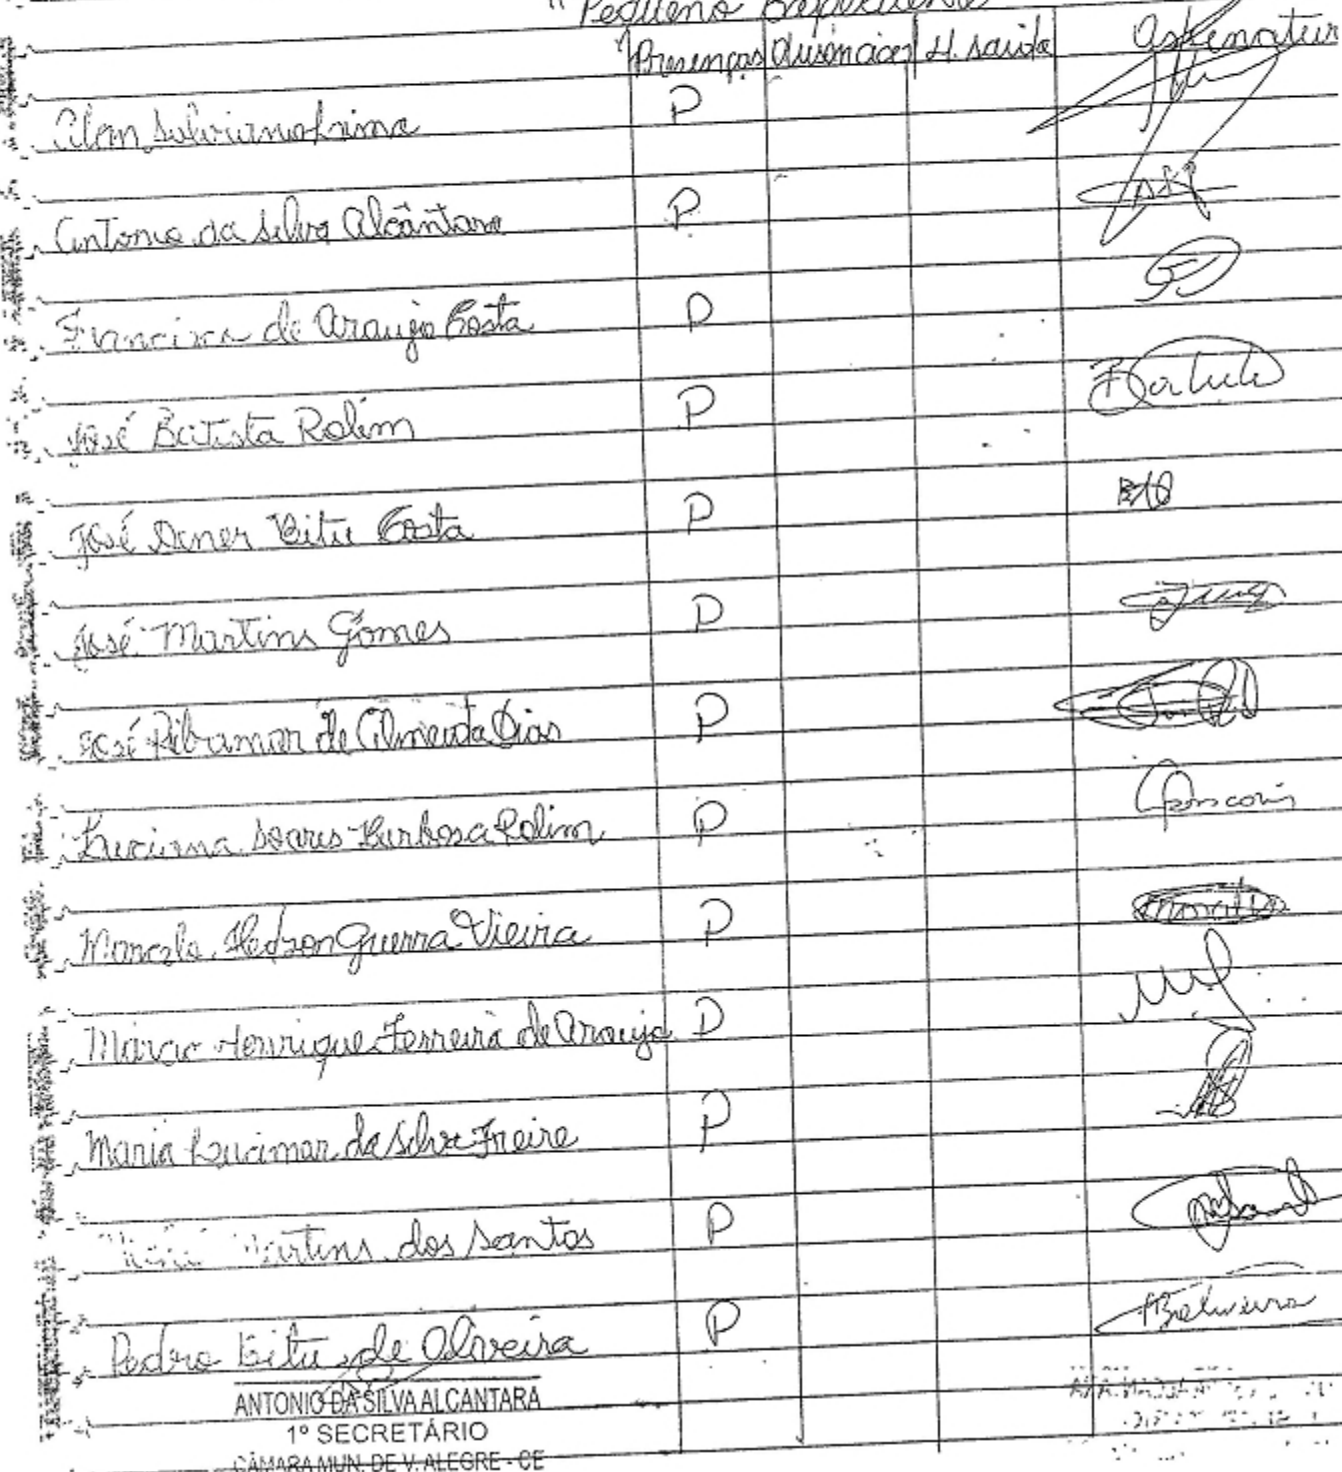 "Pequeno Expediente
Presenças Ausências H. saida assinatura
Alan Salviano Lima P
Antonio da Silva Alcântara P
Francisca de Araujo Costa P
José Batista Rolim P
José Dener Bitu Costa P
José Martins Gomes P
José Ribamar de Almeida Dias P
Luciana Soares Barbosa Rolim P
Marcelo Hedson Guerra Vieira P
Márcio Henrique Ferreira de Araujo P
Maria Lucimar da Silva Freire P
Martins dos Santos P
Pedro Bitu de Oliveira P
ANTONIO DA SILVA ALCANTARA
1º SECRETÁRIO
CÂMARA MUN. DE V. ALEGRE - CE